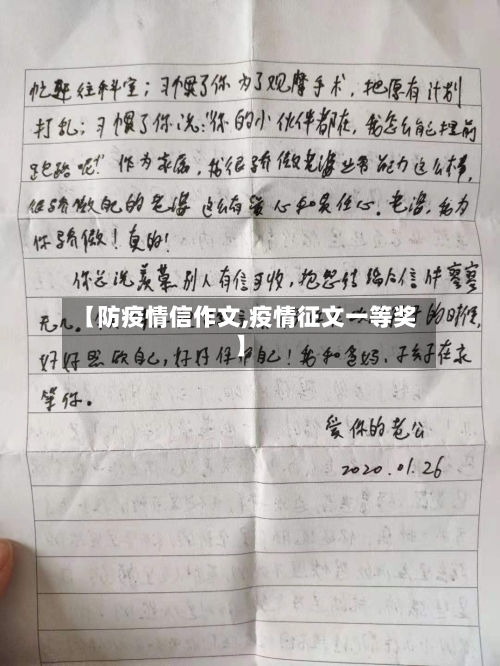 忙赶往科室；习惯了你为了观摩手术，把原有计划
打乱；习惯了你说："你的小伙伴都在，我怎么自己提前
跑路呢！"作为家属，我很骄傲老婆业务能力这么棒，
很骄傲自己的老婆这么有爱心和责任心。老婆，我为
你骄傲！真的！
你总说羡慕别人有信可收，抱怨结婚后信件寥寥
无几。
的时候，
【防疫情信作文,疫情征文一等奖
】
好好照顾自己，好好保护自己！我和爸妈、孩子在家
等你。
爱你的老公
2020.01.26